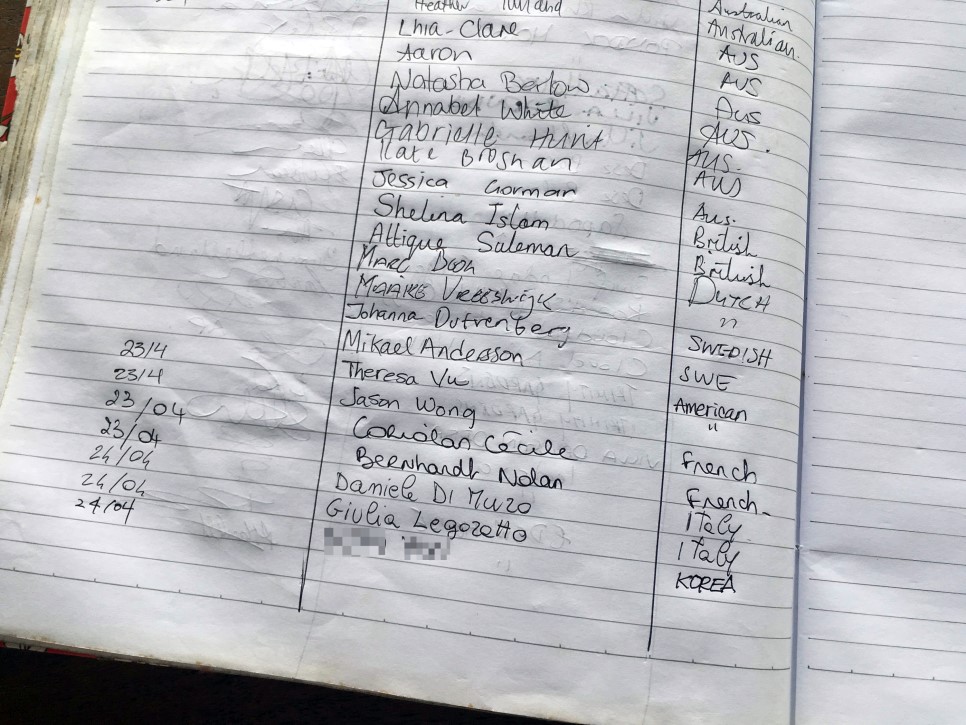 Heather Australian
Lhia-Clare Australian.
Aaron AUS
Natasha Berlow AUS
Annabel White Aus
Gabrielle Hunt AUS.
Kate Broshan AUS.
Jessica Gorman AUS
Shelina Islam Aus.
Attique Suleman British
Marc British
Maaike Vreeswijk DUTCH
Johanna Dufvenberg "
23/4 Mikael Andersson SWEDISH
23/4 Theresa Vu SWE
23/04 Jason Wong American
23/04 Coriolan Cécile "
24/04 Bernhardt Nolan French
24/04 Daniele Di Muzo French-
24/04 Giulia Legozotto Italy
Italy
KOREA